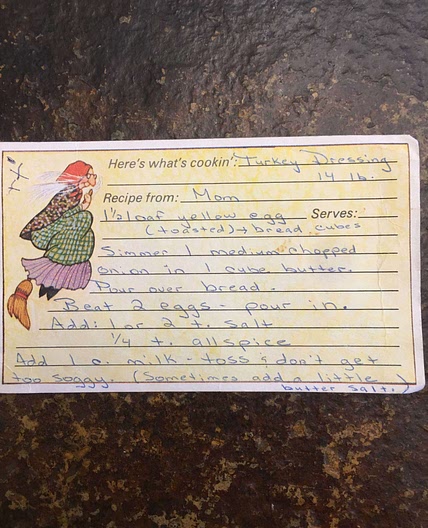 Here's what's cookin': Turkey Dressing
14 lb.
Recipe from: Mom
1½ loaf yellow egg Serves:
(toasted) → bread cubes
Simmer 1 medium chopped
onion in 1 cube butter.
Pour over bread.
Beat 2 eggs - pour in.
Add: 1 or 2 t. salt
1/4 t. allspice
Add 1 c. milk - toss & don't get
too soggy. (Sometimes add a little
butter salt.)